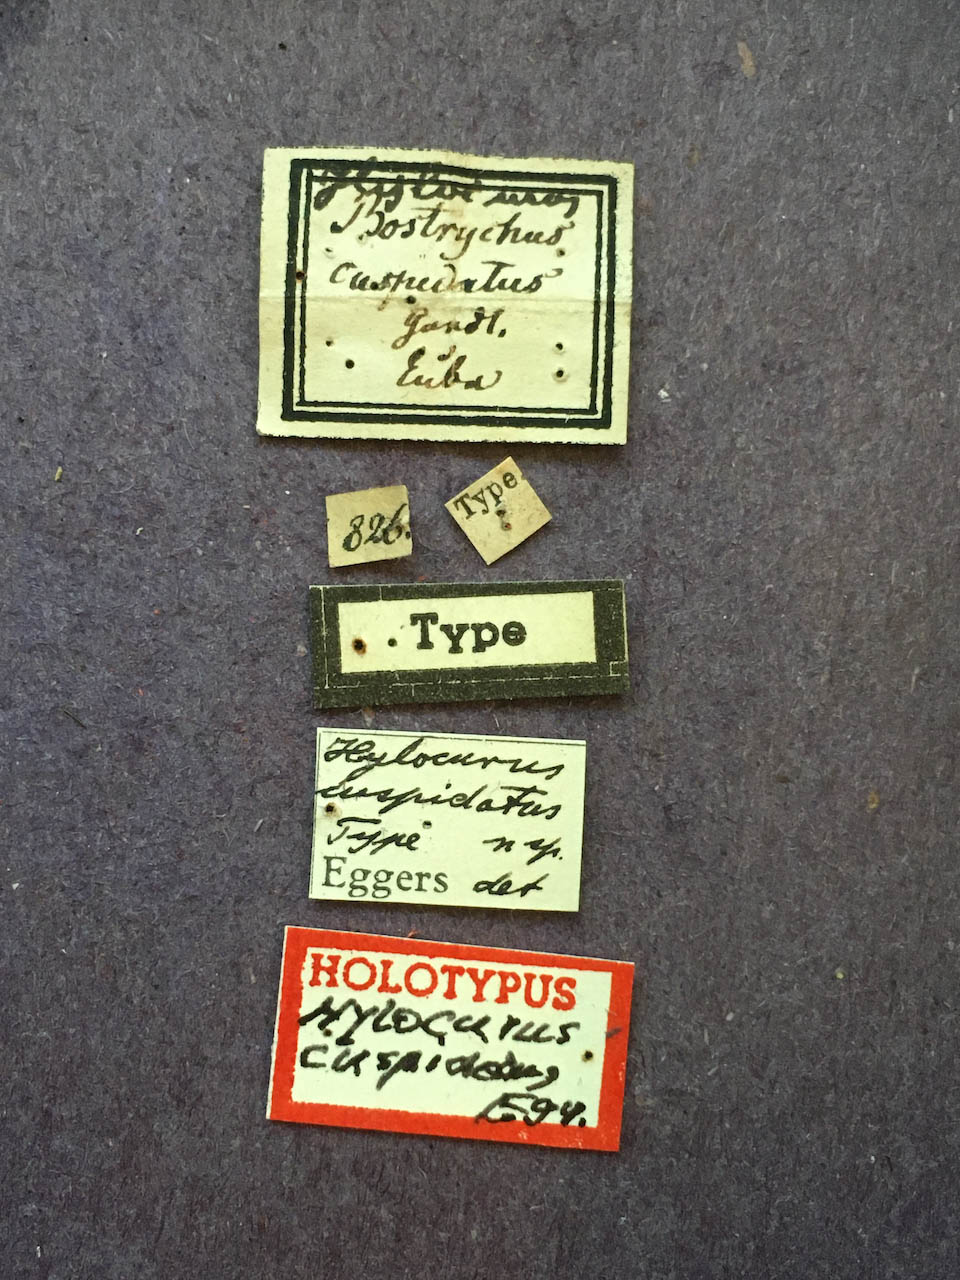 Bostrychus
cuspidatus
Gundl.
Cuba
826.
Type
Type
Hylocurus
cuspidatus
Type
Eggers det
HOLOTYPUS
HYLOCURUS
Egg.